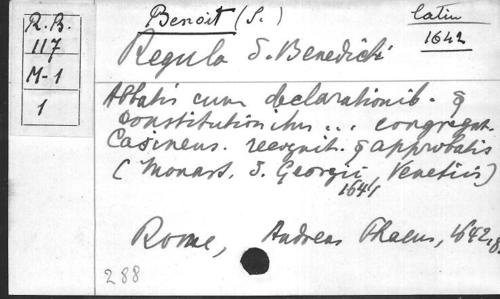 R.B.
117
M-1
1
Benoit (S.)
latin
1642
Regula S. Benedicti
Abbatis cum declarationib. &
constitutionibus ... congregat.
Casinens. recognit. & approbatis
(Monast. S. Georgii, Venetiis)
1641
Rome, Andreas Phaeus, 1642, 8.
288